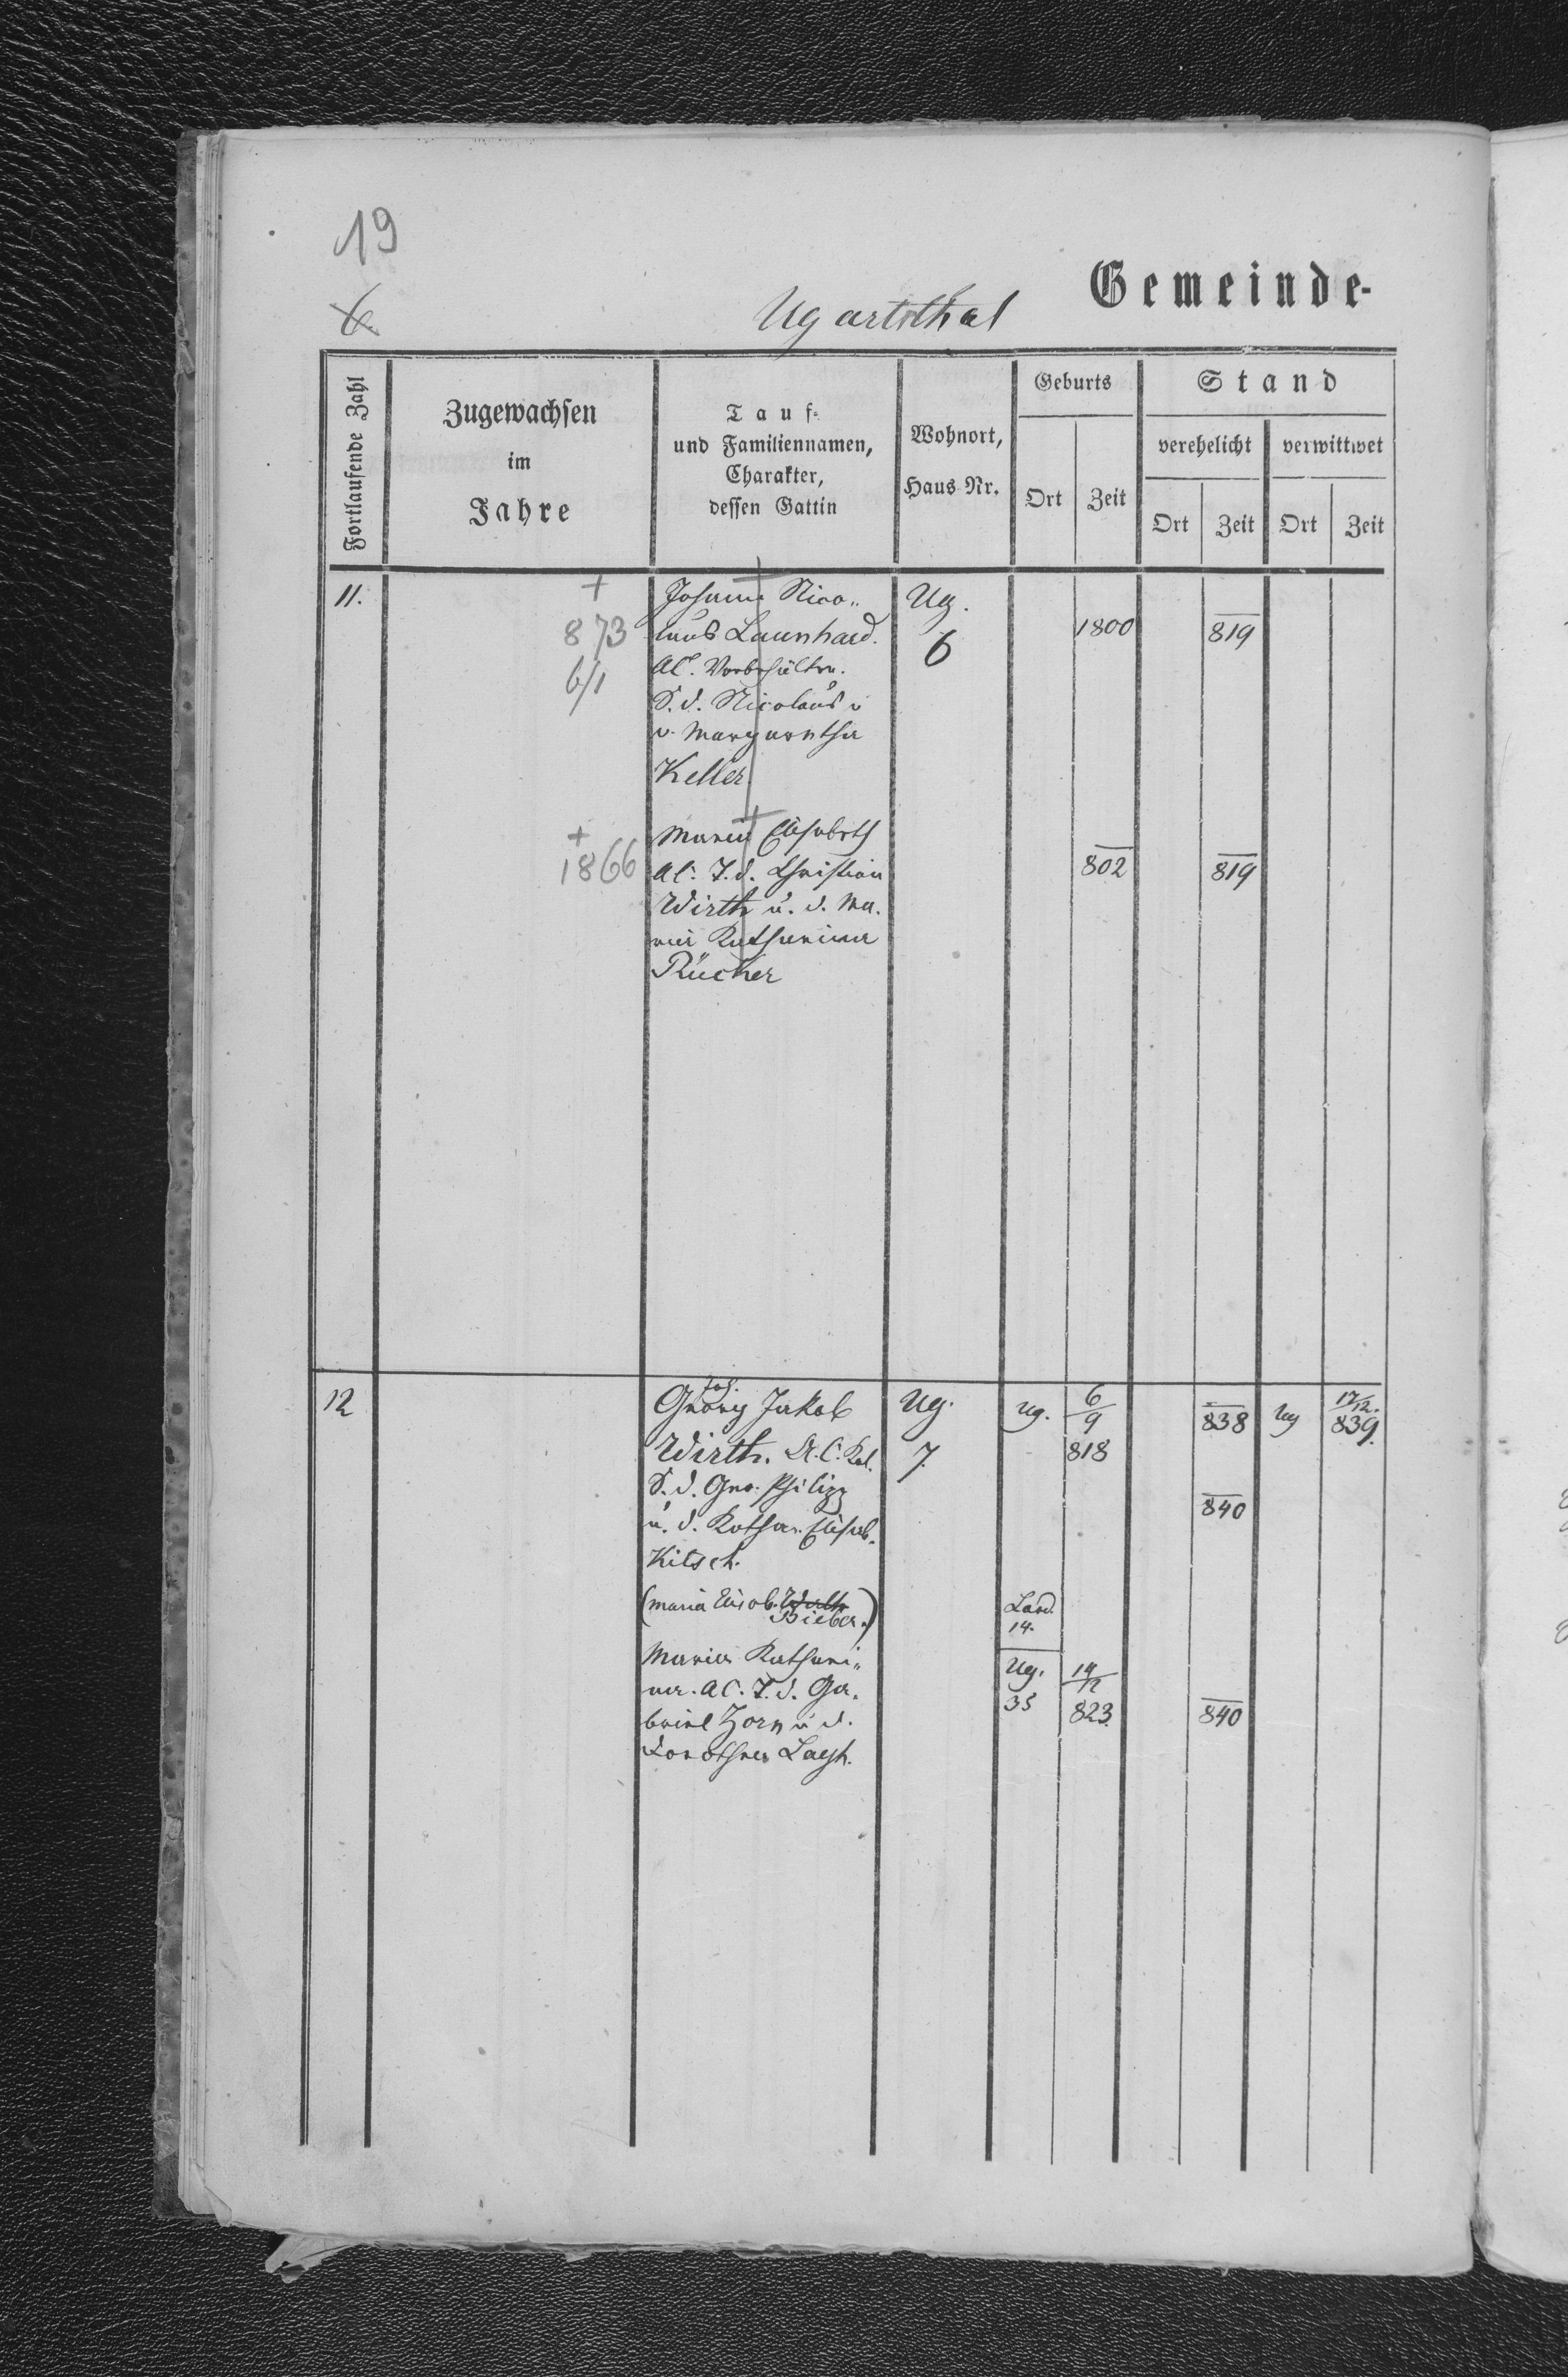 19
6
Ugartsthal
Gemeinde-
Fortlaufende Zahl
Zugewachsen
im
Jahre
Tauf-
und Familiennamen,
Charakter,
dessen Gattin
Wohnort,
Haus-Nr.
Geburts
Ort Zeit
Stand
verehelicht verwittwet
Ort Zeit Ort Zeit
11. + Johann Nico„ Ug.
873 laus Launhard. 6 1800 819
6/1 AC.
S. d. Nicolaus
u. Margaretha
Keller
+ Maria Elisabeth
1866 AC. T. d. Christian 802 819
Wirth u. d. Ma.
ria Katharina
Rücker
12 Georg Jakob Ug. Ug. 6/9 838 Ug 17/12.
Joh.
Wirth. A. C. 7. 818 839.
S. d. Geo. Philipp
u. d. Kathar. Elisab. 840
Kitsch.
(Maria Elisab. Wirth Land.
Bieber.) 14.
Maria Kathari„ Ug. 14/12
na. AC. T. d. Ga„ 35
briel Zorn u. d. 823. 840
Dorothea